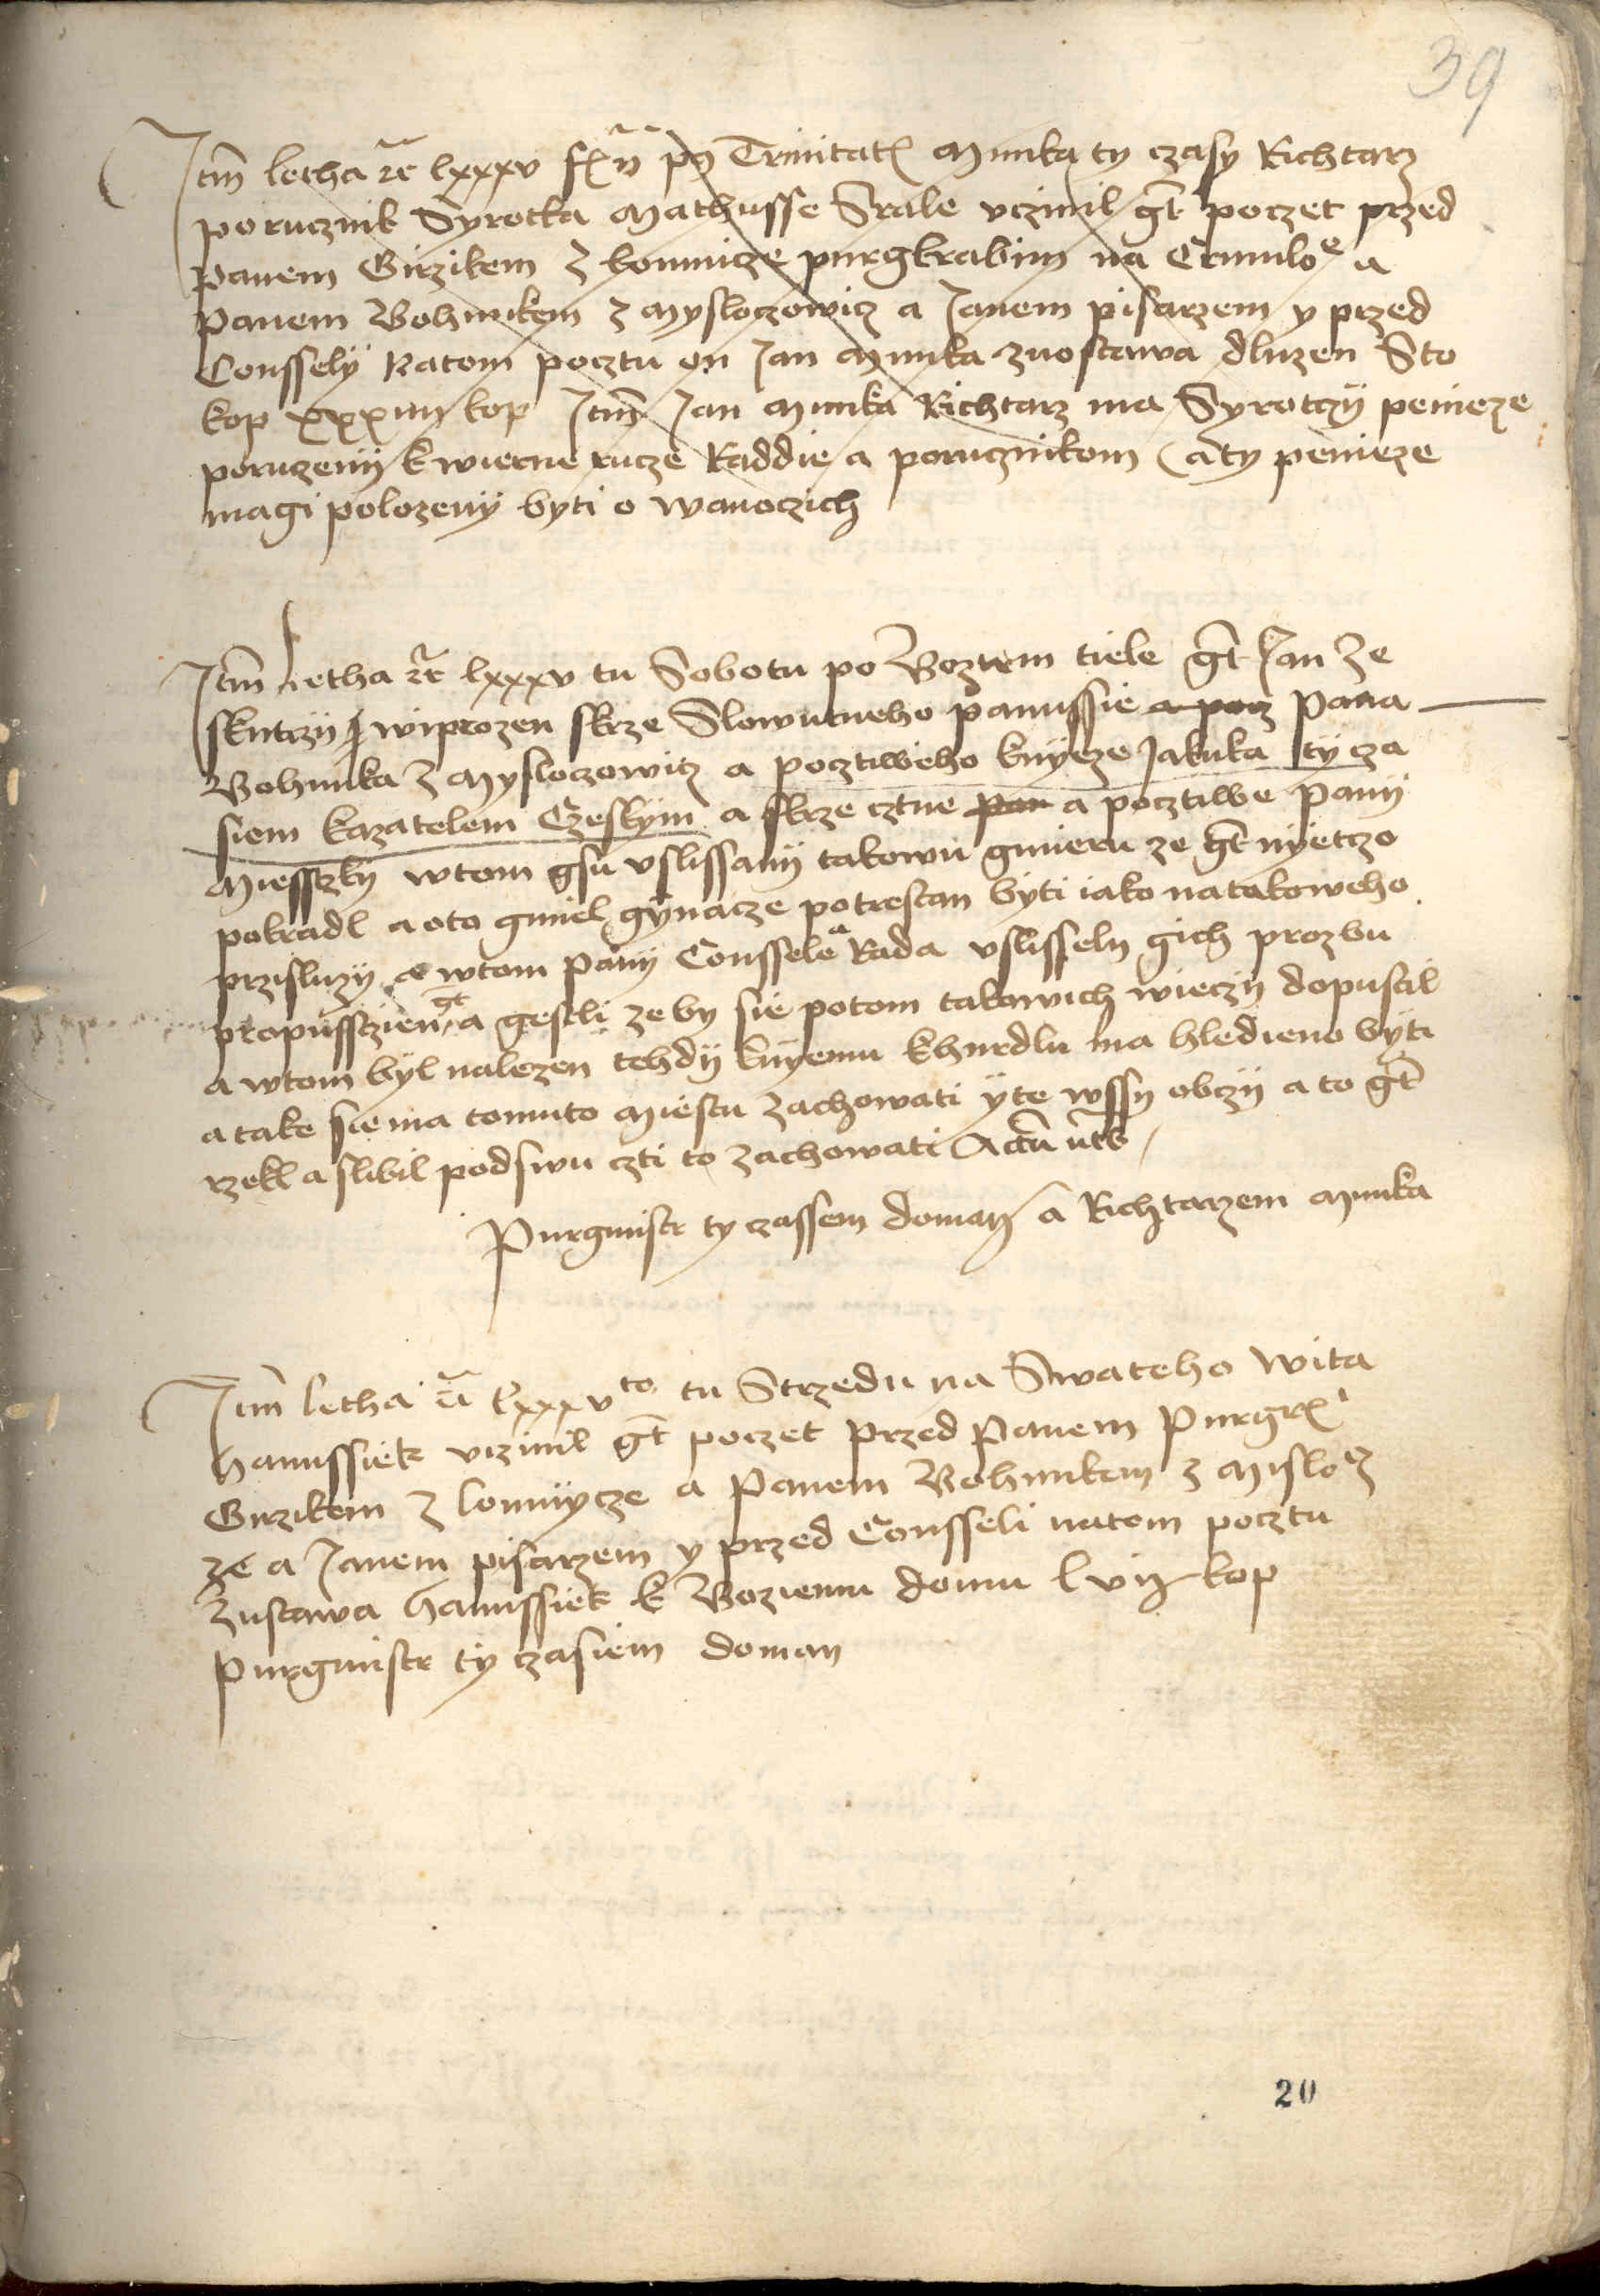 39
Itm̄ letha ꝛc̄ lxxxv ſꝭ ij pꝰ Trinitatꝭ Munka ty czasy Richtarz
porucznik Syrotka Mathusse Srale vczinil gt̄ poczet przed
Panem Girzikem z lomnicze purgkrabim na Crumloe a
Panem Bohunkem z Mysloczowicz a Janem pisarzem y przed
Conssely Natom pocztu on Jan Munka zuostawa dluzen Sto
kop xxxiiii kop Itm̄ Jan Munka Richtarz ma Syrotczij penieze
poruczenij k wierne rucze Raddie a porucznikom a ty penieze
magi polozenij byti o wanoczich
Itm̄ letha ꝛc̄ lxxxv tu Sobotu po Boziem tiele gt̄ Jan Ze
skutczij wiprozen skrze Slowutneho panussie a porz Pana
Bohunka z Mysloczowicz a pocztiweho knyeze Jakuka tij cza
siem kazatelem Czeskym a skrze cztne pan a pocztiwe Panij
Miesstzky wtom gsu vslissanij takowu gmieru ze gt̄ nyetczo
pokradl a oto gmiel gynacze potrestan byti iako natakoweho
przisluzy a wtom Panij Conssele a Rada vslisseln gich prozbu
propussczien gt a gestli ze by sie potom takowich wieczij dopustil
a wtom byl nalezen tehdij knyemu k hurdlu ma hledieno byti
a take sie ma tomuto Miestu zachowati yte wssy obczij a to gt̄
rzekl a slibil pod swu czti to zachowati Actū ut s
Purgmistr ty czassem doman a Richtarzem Munka
Itm̄ letha ꝛc̄ lxxxvto tu Strzedu na Swateho Wita
Hanussiek vczinil gt̄ poczet przed Panem Purgrꝭ
Girzikem z lomnycze a Panem Bohunkem z Misloc
ze a Janem pisarzem y przed Consseli natom pocztu
Zustawa Hanussiek k Boziemu domu lvij kop
Purgmistr ty czasiem doman
20